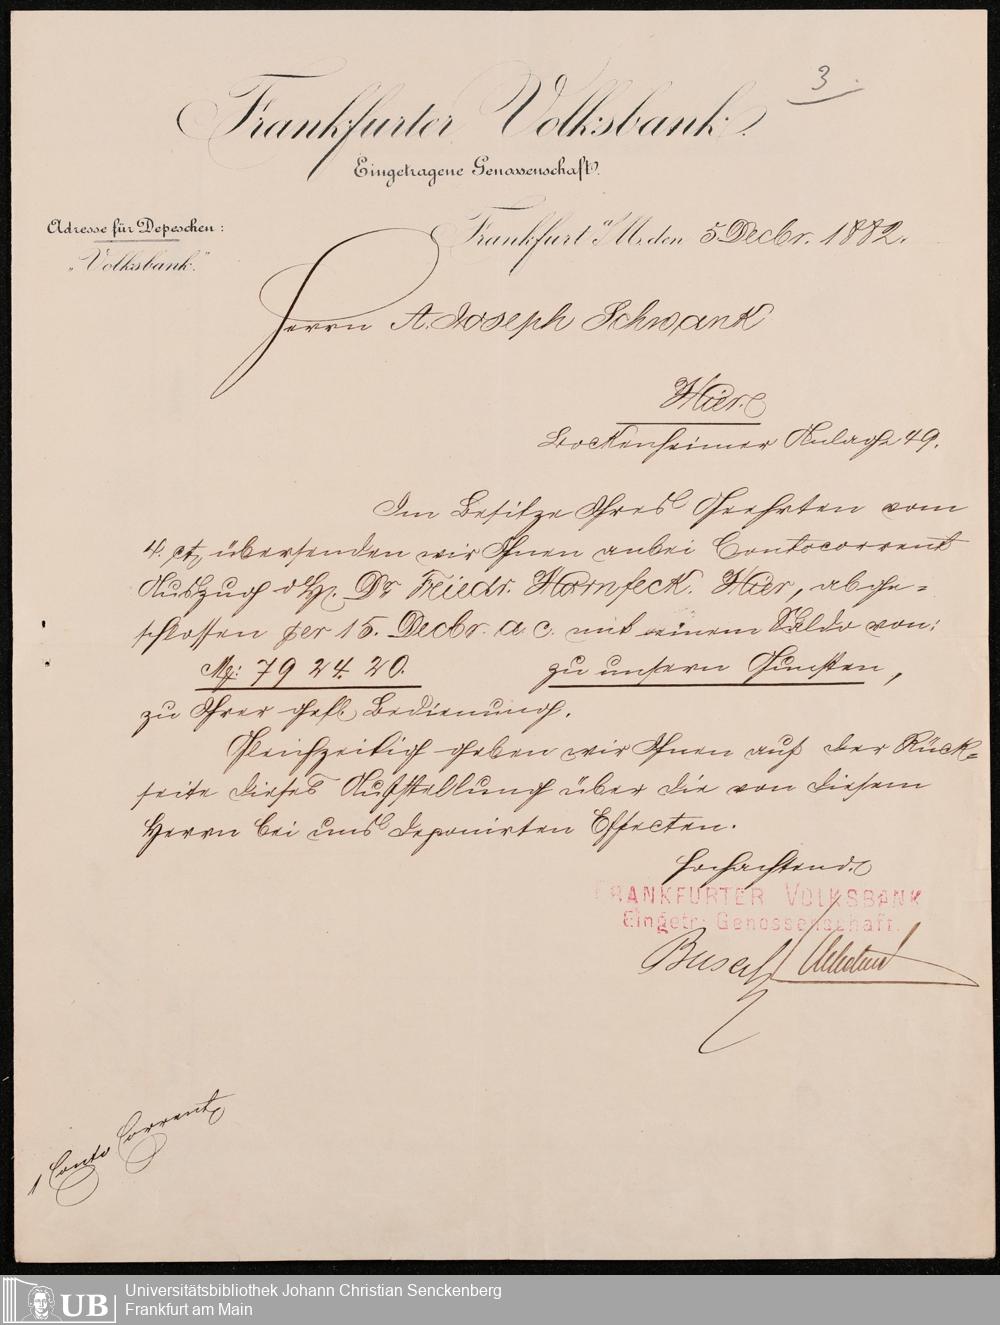 3.
Frankfurter Volksbank.
Eingetragene Genossenschaft.
Adresse für Depeschen:
"Volksbank."
Frankfurt a/M, den 5 Decbr. 1882.
Herrn A. Joseph Schwank
Hier.
Bockenheimer Anlage 49.
Im Besitze Ihres Geehrten vom
4. ct, übersenden wir Ihnen anbei Contocorrent
Auszug d. H. Dr Friedr. Hornfeck. Hier, abge=
schlossen per 15. Decbr. a. c. mit einem Saldo von:
Mk: 7924.20. zu unsern Gunsten,
zu Ihrer gefl. Bedienung.
Gleichzeitig geben wir Ihnen auf der Rück=
seite dieses Aufstellung über die von diesem
Herrn bei uns deponirten Effecten.
Hochachtend.
FRANKFURTER VOLKSBANK
Eingetr. Genossenschaft.
Busch
1 Conto Corrent
UB
Universitätsbibliothek Johann Christian Senckenberg
Frankfurt am Main